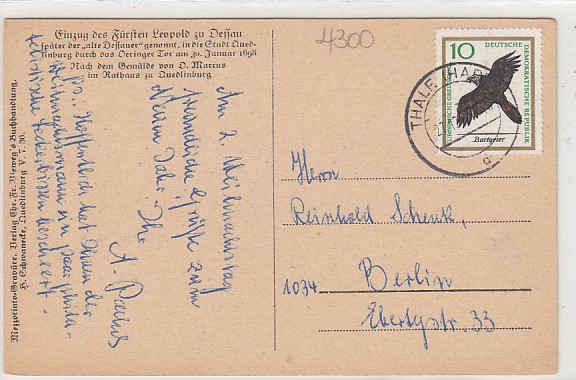 Einzug des Fürsten Leopold zu Dessau
später der „alte Dessauer“ genannt, in die Stadt Qued-
linburg durch das Oeringer Tor am 30. Januar 1698
Nach dem Gemälde von O. Marcus
im Rathaus zu Quedlinburg
4300
10 DEUTSCHE
DEMOKRATISCHE REPUBLIK
Bartgeier
THALE (HARZ)
Mezzotinto-Gravüre. Verlag Chr. Fr. Vieweg's Buchhandlung,
H. Schwanecke, Quedlinburg
Am 2. Weihnachtstag
freundliche Grüße zum
Neuen Jahr. Ihr
A.
Ps: Hoffentlich hat Ihnen der
Weihnachtsmann ein paar phila-
telistische Leckerbissen beschert.
Herrn
Reinhold Schenk,
1034 Berlin
Ebertystr. 33